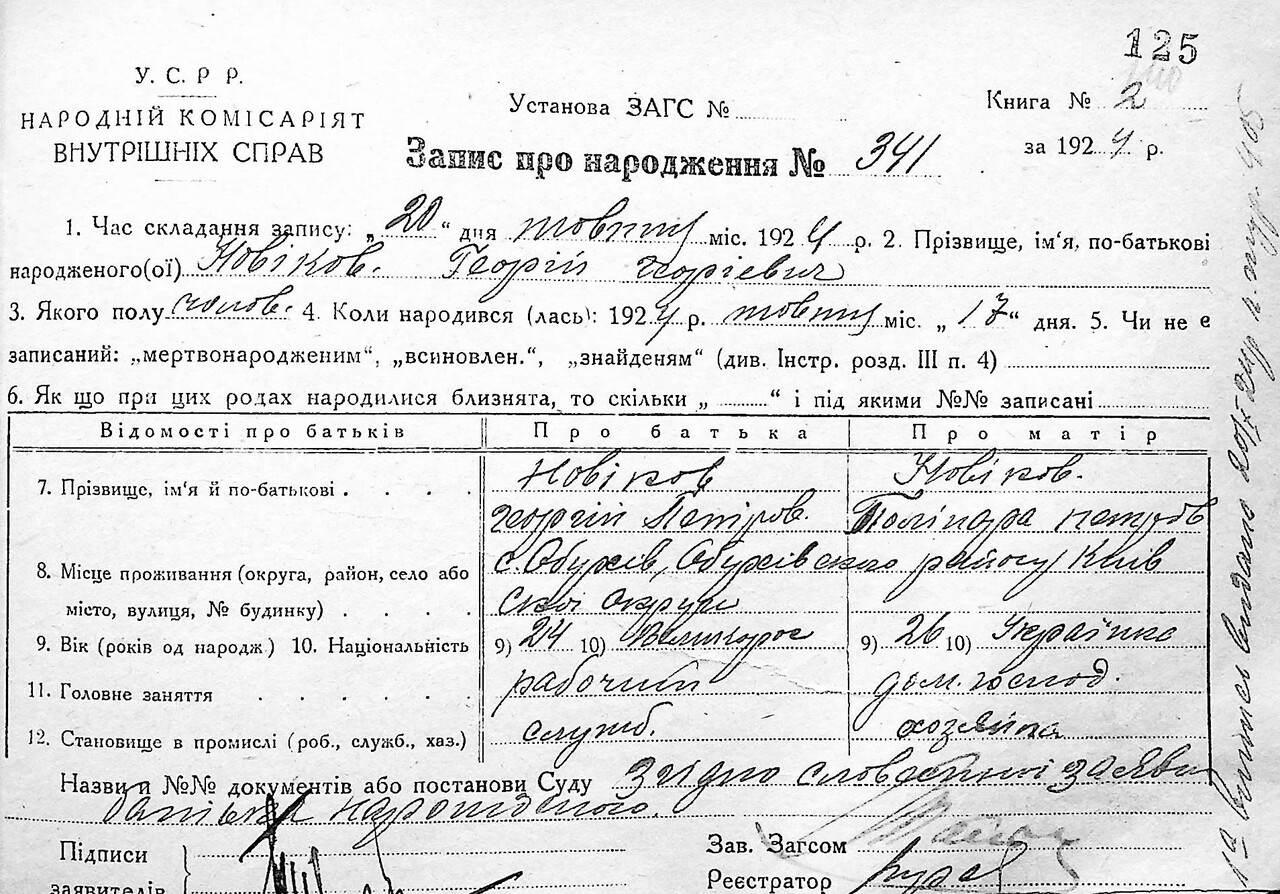 125
У. С. Р. Р.
НАРОДНІЙ КОМІСАРІЯТ
ВНУТРІШНІХ СПРАВ
Установа ЗАГС №
Книга № 2
за 1924 р.
Запис про народження № 341
1. Час складання запису: „20“ дня жовтня міс. 1924 р. 2. Прізвище, ім'я, по-батькові
народженого(ої) Новіков. Георгій Георгіевич
3. Якого полу чолов. 4. Коли народився (лась): 1924 р. жовтня міс. „17“ дня. 5. Чи не є
записаний: „мертвонародженим“, „всиновлен.“, „знайденям“ (див. Інстр. розд. III п. 4)
6. Як що при цих родах народилися близнята, то скільки „ “ і під якими №№ записані
Відомості про батьків Про батька Про матір
7. Прізвище, ім'я й по-батькові . . . . Новіков Новіков.
Георгій Петров. петров
8. Місце проживання (округа, район, село або с. Обухів, Обухівского району Київ
місто, вулиця, № будинку) . . . . скої округи
9. Вік (років од народж.) 10. Національність 9) 24 10) Великорос 9) 26 10) Українка
11. Головне заняття . . . . . рабочий дом. господ.
12. Становище в промислі (роб., служб., хаз.) служб. хозяйка
Назви й №№ документів або постанови Суду Згідно словесної заяви
батька народженого.
Підписи
заявителів
Зав. Загсом
Реєстратор